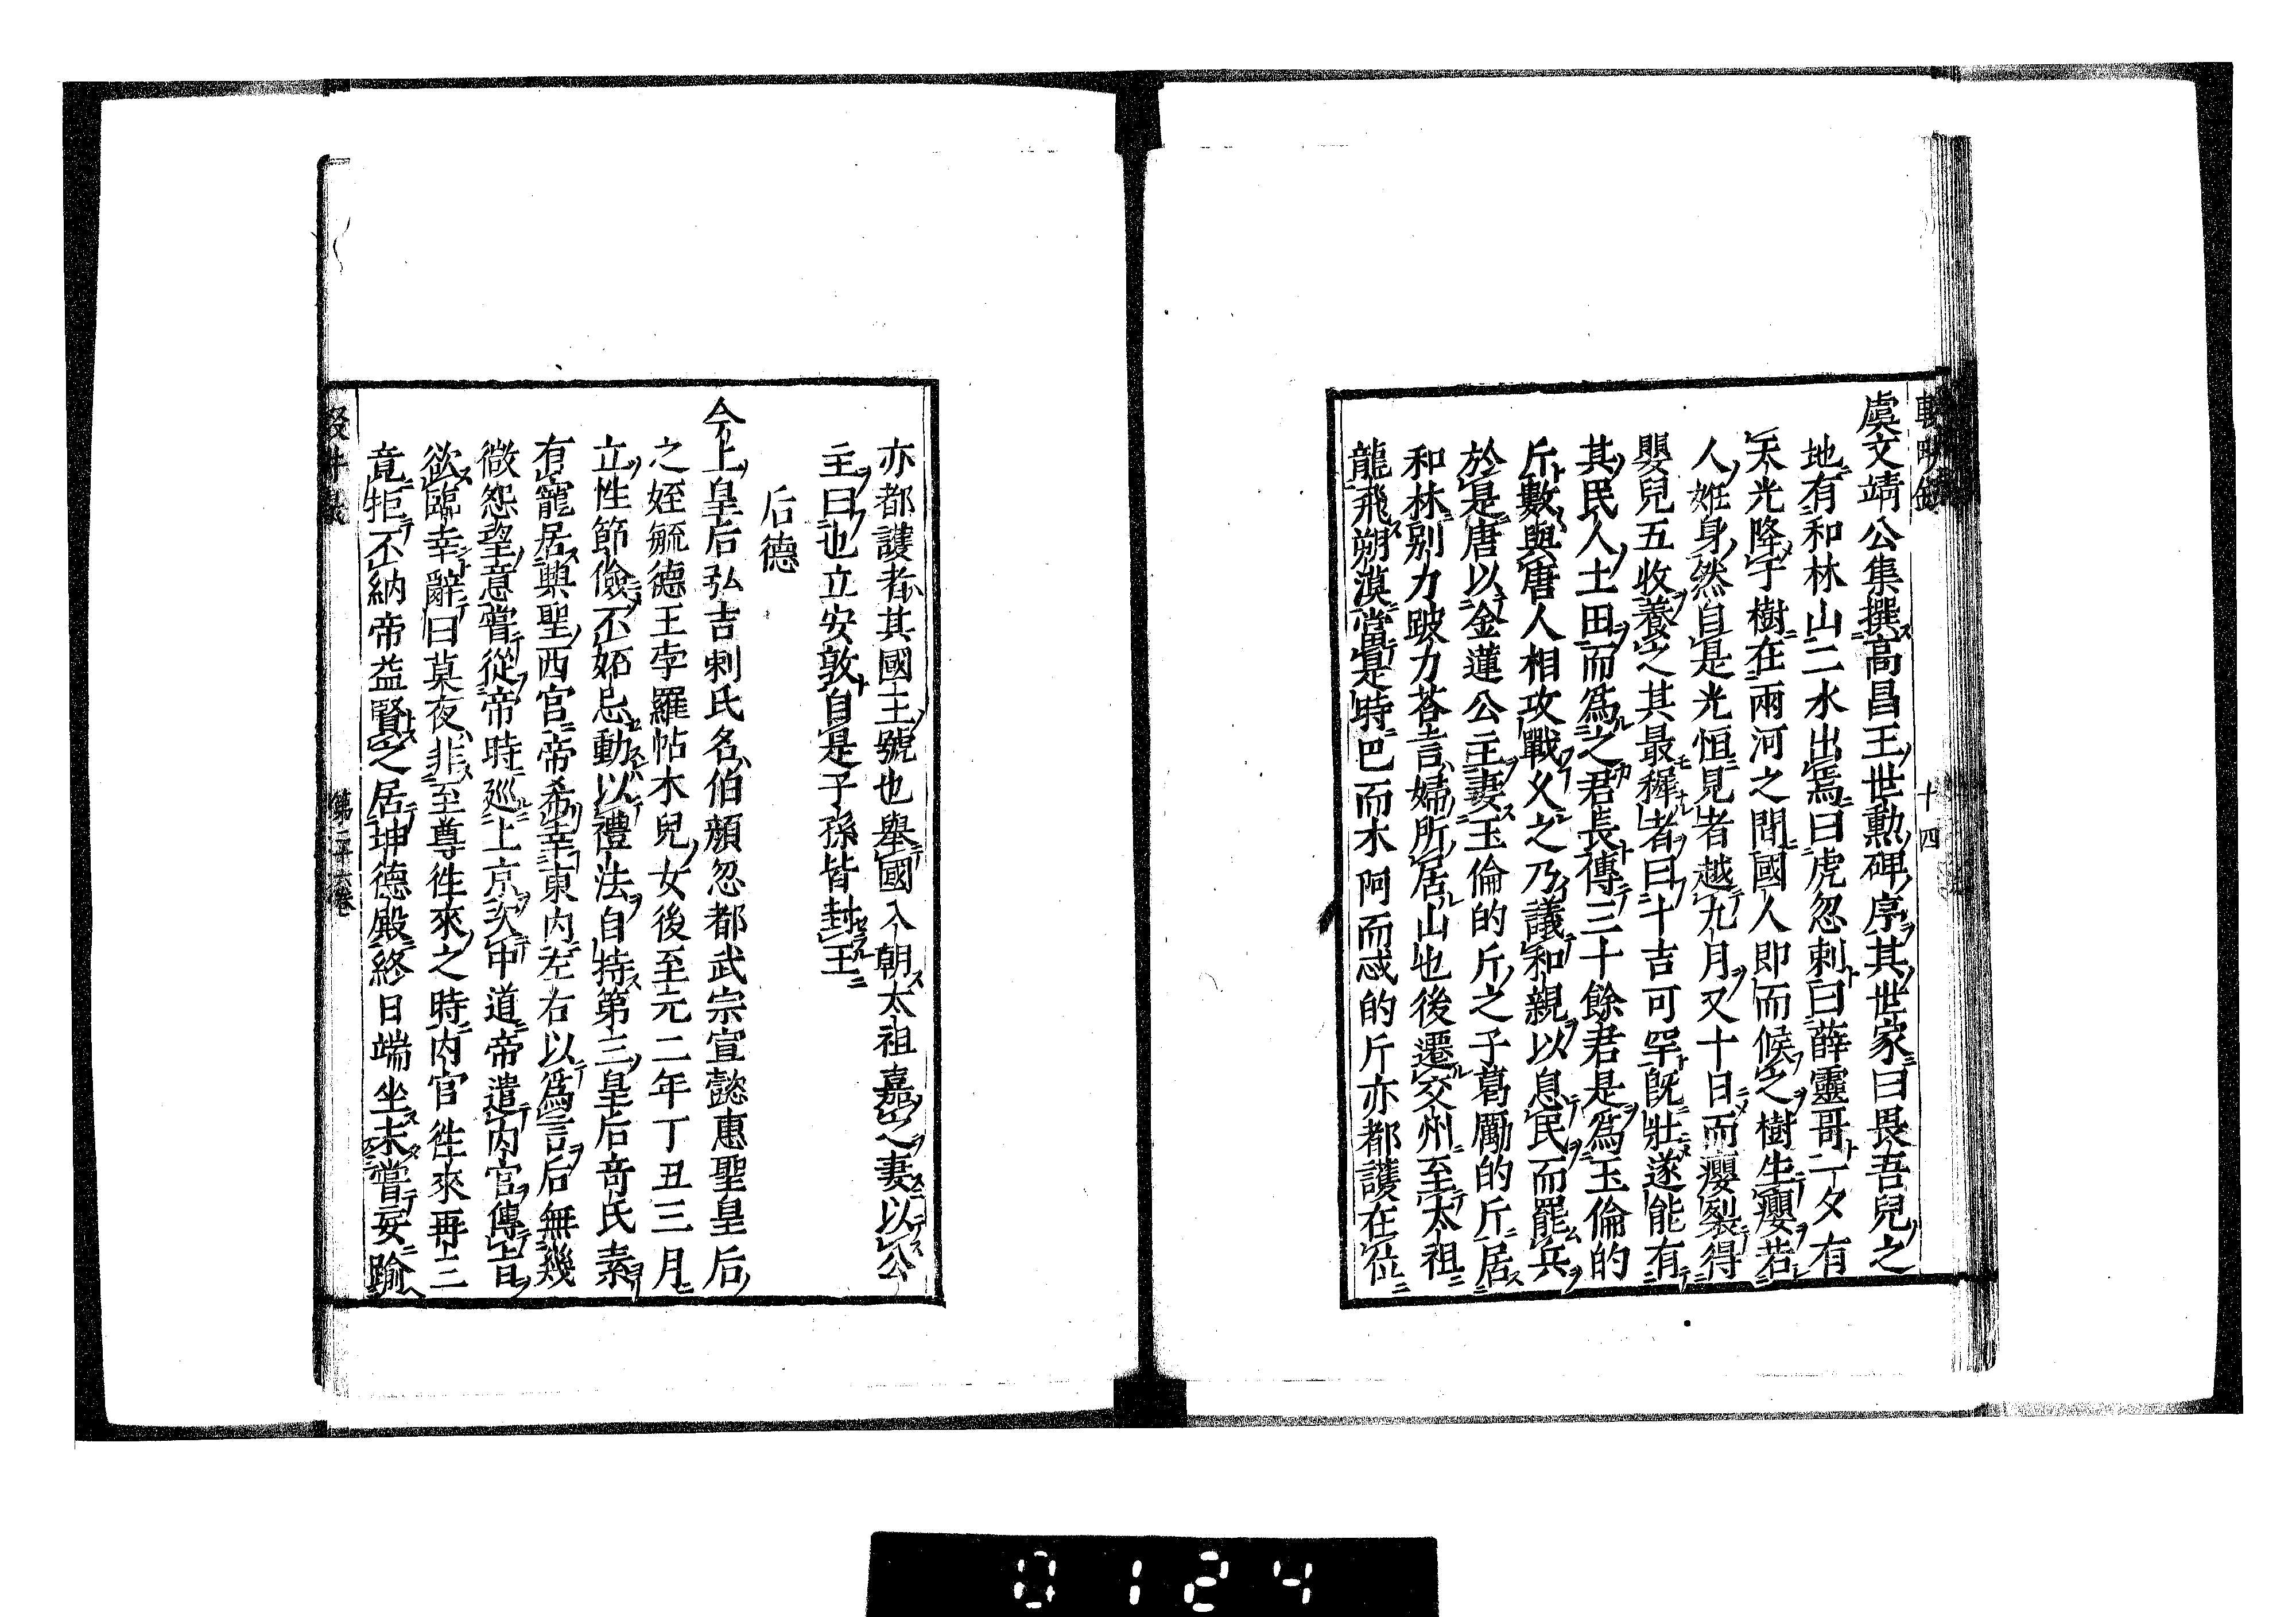 十四
虞文靖公集撰高昌王世勲碑序其世家曰畏吾兒之
地有和林山二水出焉曰虎忽剌曰薛靈哥一夕有
天光降于樹在兩河之間國人即而候之樹生癭若
人姙身然自是光恒見者越九月又十日而癭裂得
嬰兒五收養之其最穉者曰卜吉可罕既壯遂能有
其民人土田而為之君長傳三十餘君是為玉倫的
斤數與唐人相攻戰乂之乃議和親以息民而罷兵
於是唐以金蓮公主妻玉倫的斤之子葛勵的斤居
和林别力跛力荅言婦所居山也後遷交州至太祖
龍飛朔漠當是時巴而木阿而忒的斤亦都護在位
亦都護者其國王號也舉國入朝太祖嘉之妻以公
主曰也立安敦自是子孫皆封王
后德
今上皇后弘吉剌氏名伯顏忽都武宗宣懿惠聖皇后
之姪毓德王孛羅帖木兒女後至元二年丁丑三月
立性節儉不妬忌動以禮法自持第三皇后奇氏素
有寵居興聖西宮帝希幸東内左右以為言后無幾
微怨望意嘗從帝時廵上京次中道帝遣内官傳旨
欲臨幸辭曰莫夜非至尊徃來之時内官徃來再三
竟拒不納帝益賢之居坤德殿終日端坐未嘗妄踰
第二十六巻
0124